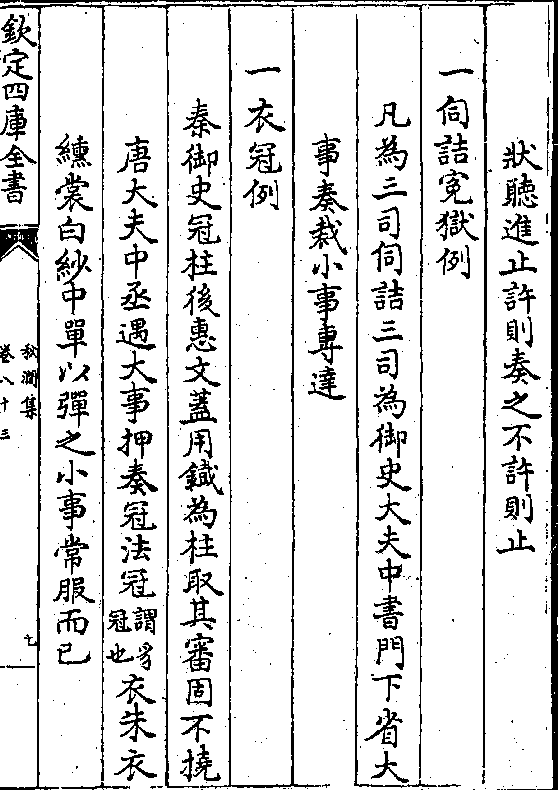 狀聽進止許則奏之不許則止
一伺詰冤獄例
凡為三司伺詰三司為御史大夫中書門下省大
事奏裁小事專達
一衣冠例
秦御史冠柱後惠文蓋用鐡為柱取其審固不撓
唐大夫中丞遇大事押奏冠法冠謂豸冠也衣朱衣
纁裳白紗中單以彈之小事常服而已
欽定四庫全書
秋澗集
卷八十三
七